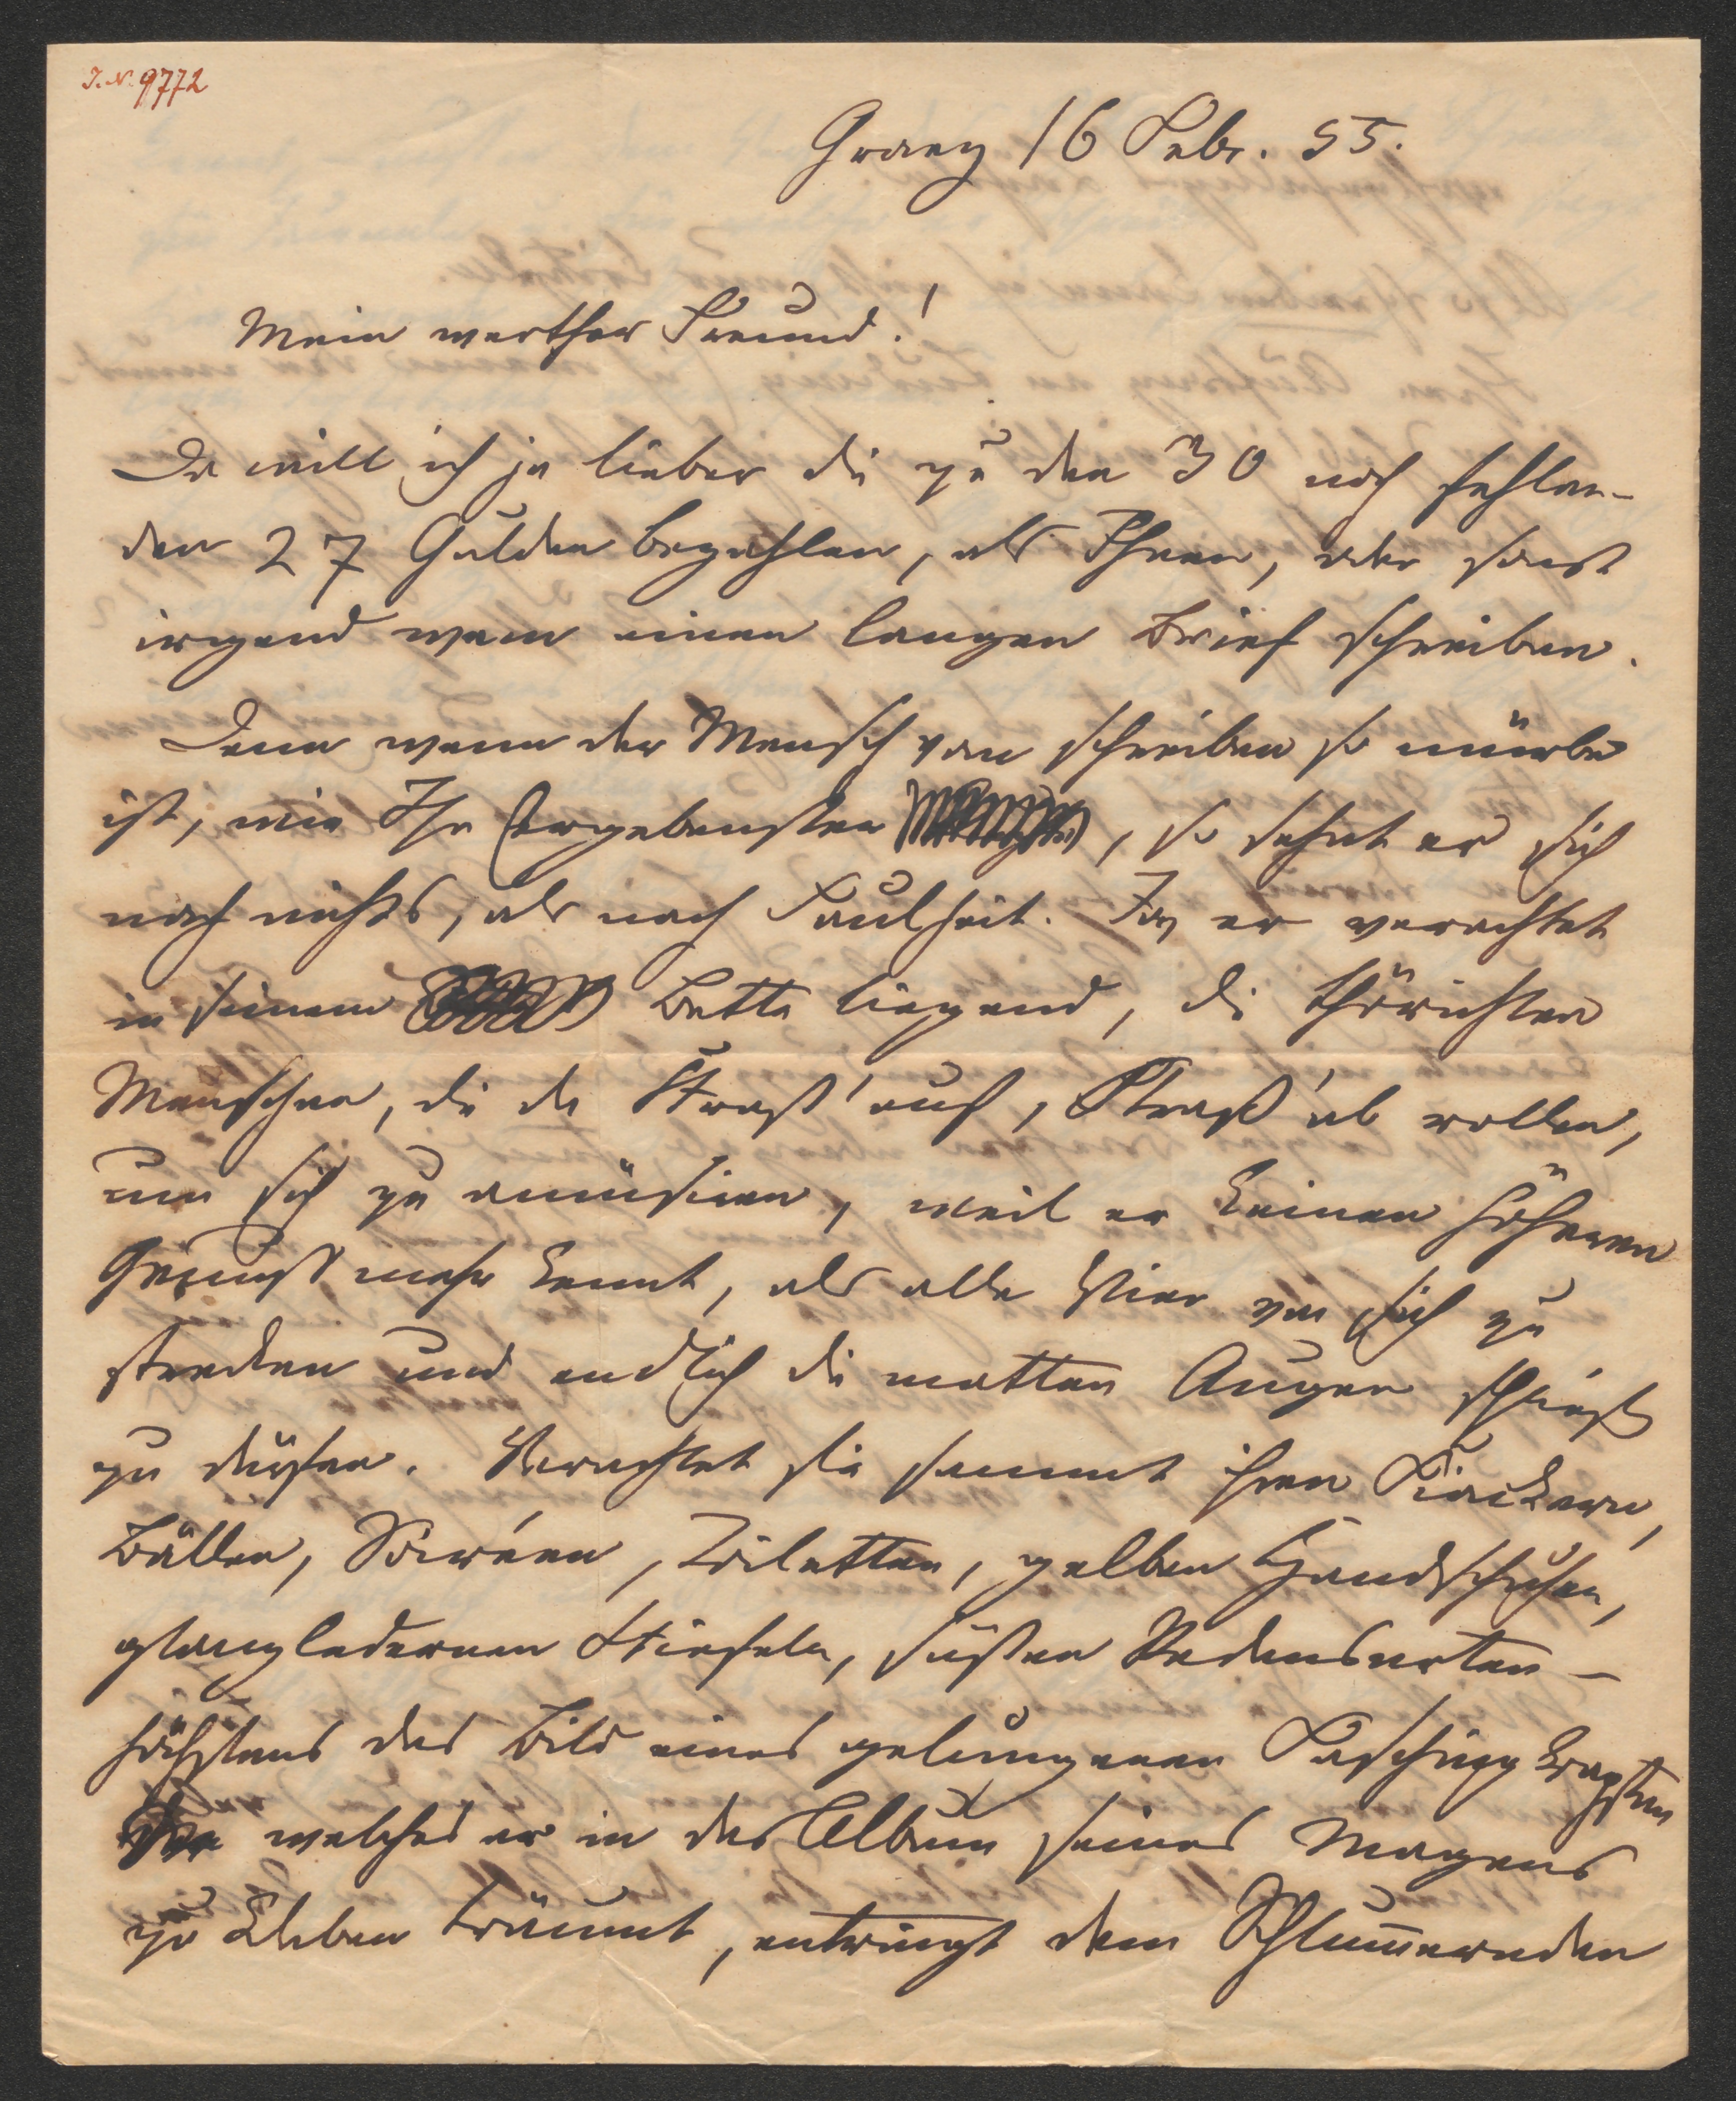 I.N. 9772
Graez 16 Febr. 55.
Mein werther Freund!
Da will ich ja lieber die zu den 30 noch fehlen-
den 27 Gulden bezahlen, als Ihnen, oder sonst
irgend wem einen langen Brief schreiben.
Denn wenn der Mensch von schreiben so mürbe
ist, wie Ihr Ergebenster, so sehnt er sich
nach nichts, als nach Faulheit. Ja er verachtet
in seinem Bette liegend, die thörichten
Menschen, die da Straß' auf, Straß' ab rollen,
um sich zu amüsiren, weil er keinen höheren
Genuß mehr kennt, als alle Vier von sich zu
strecken und endlich die matten Augen schließen
zu dürfen. Verachtet sie sammt ihren Fiackern,
Bällen, Soiréen, Toiletten, gelben Handschuhen,
glanzledernen Stiefeln, süßen Redensarten –
höchstens das Bild eines gelungenen Faschingskrapfen
welches er in das Album seines Magens
zu kleben träumt, entringt dem Schlummernden